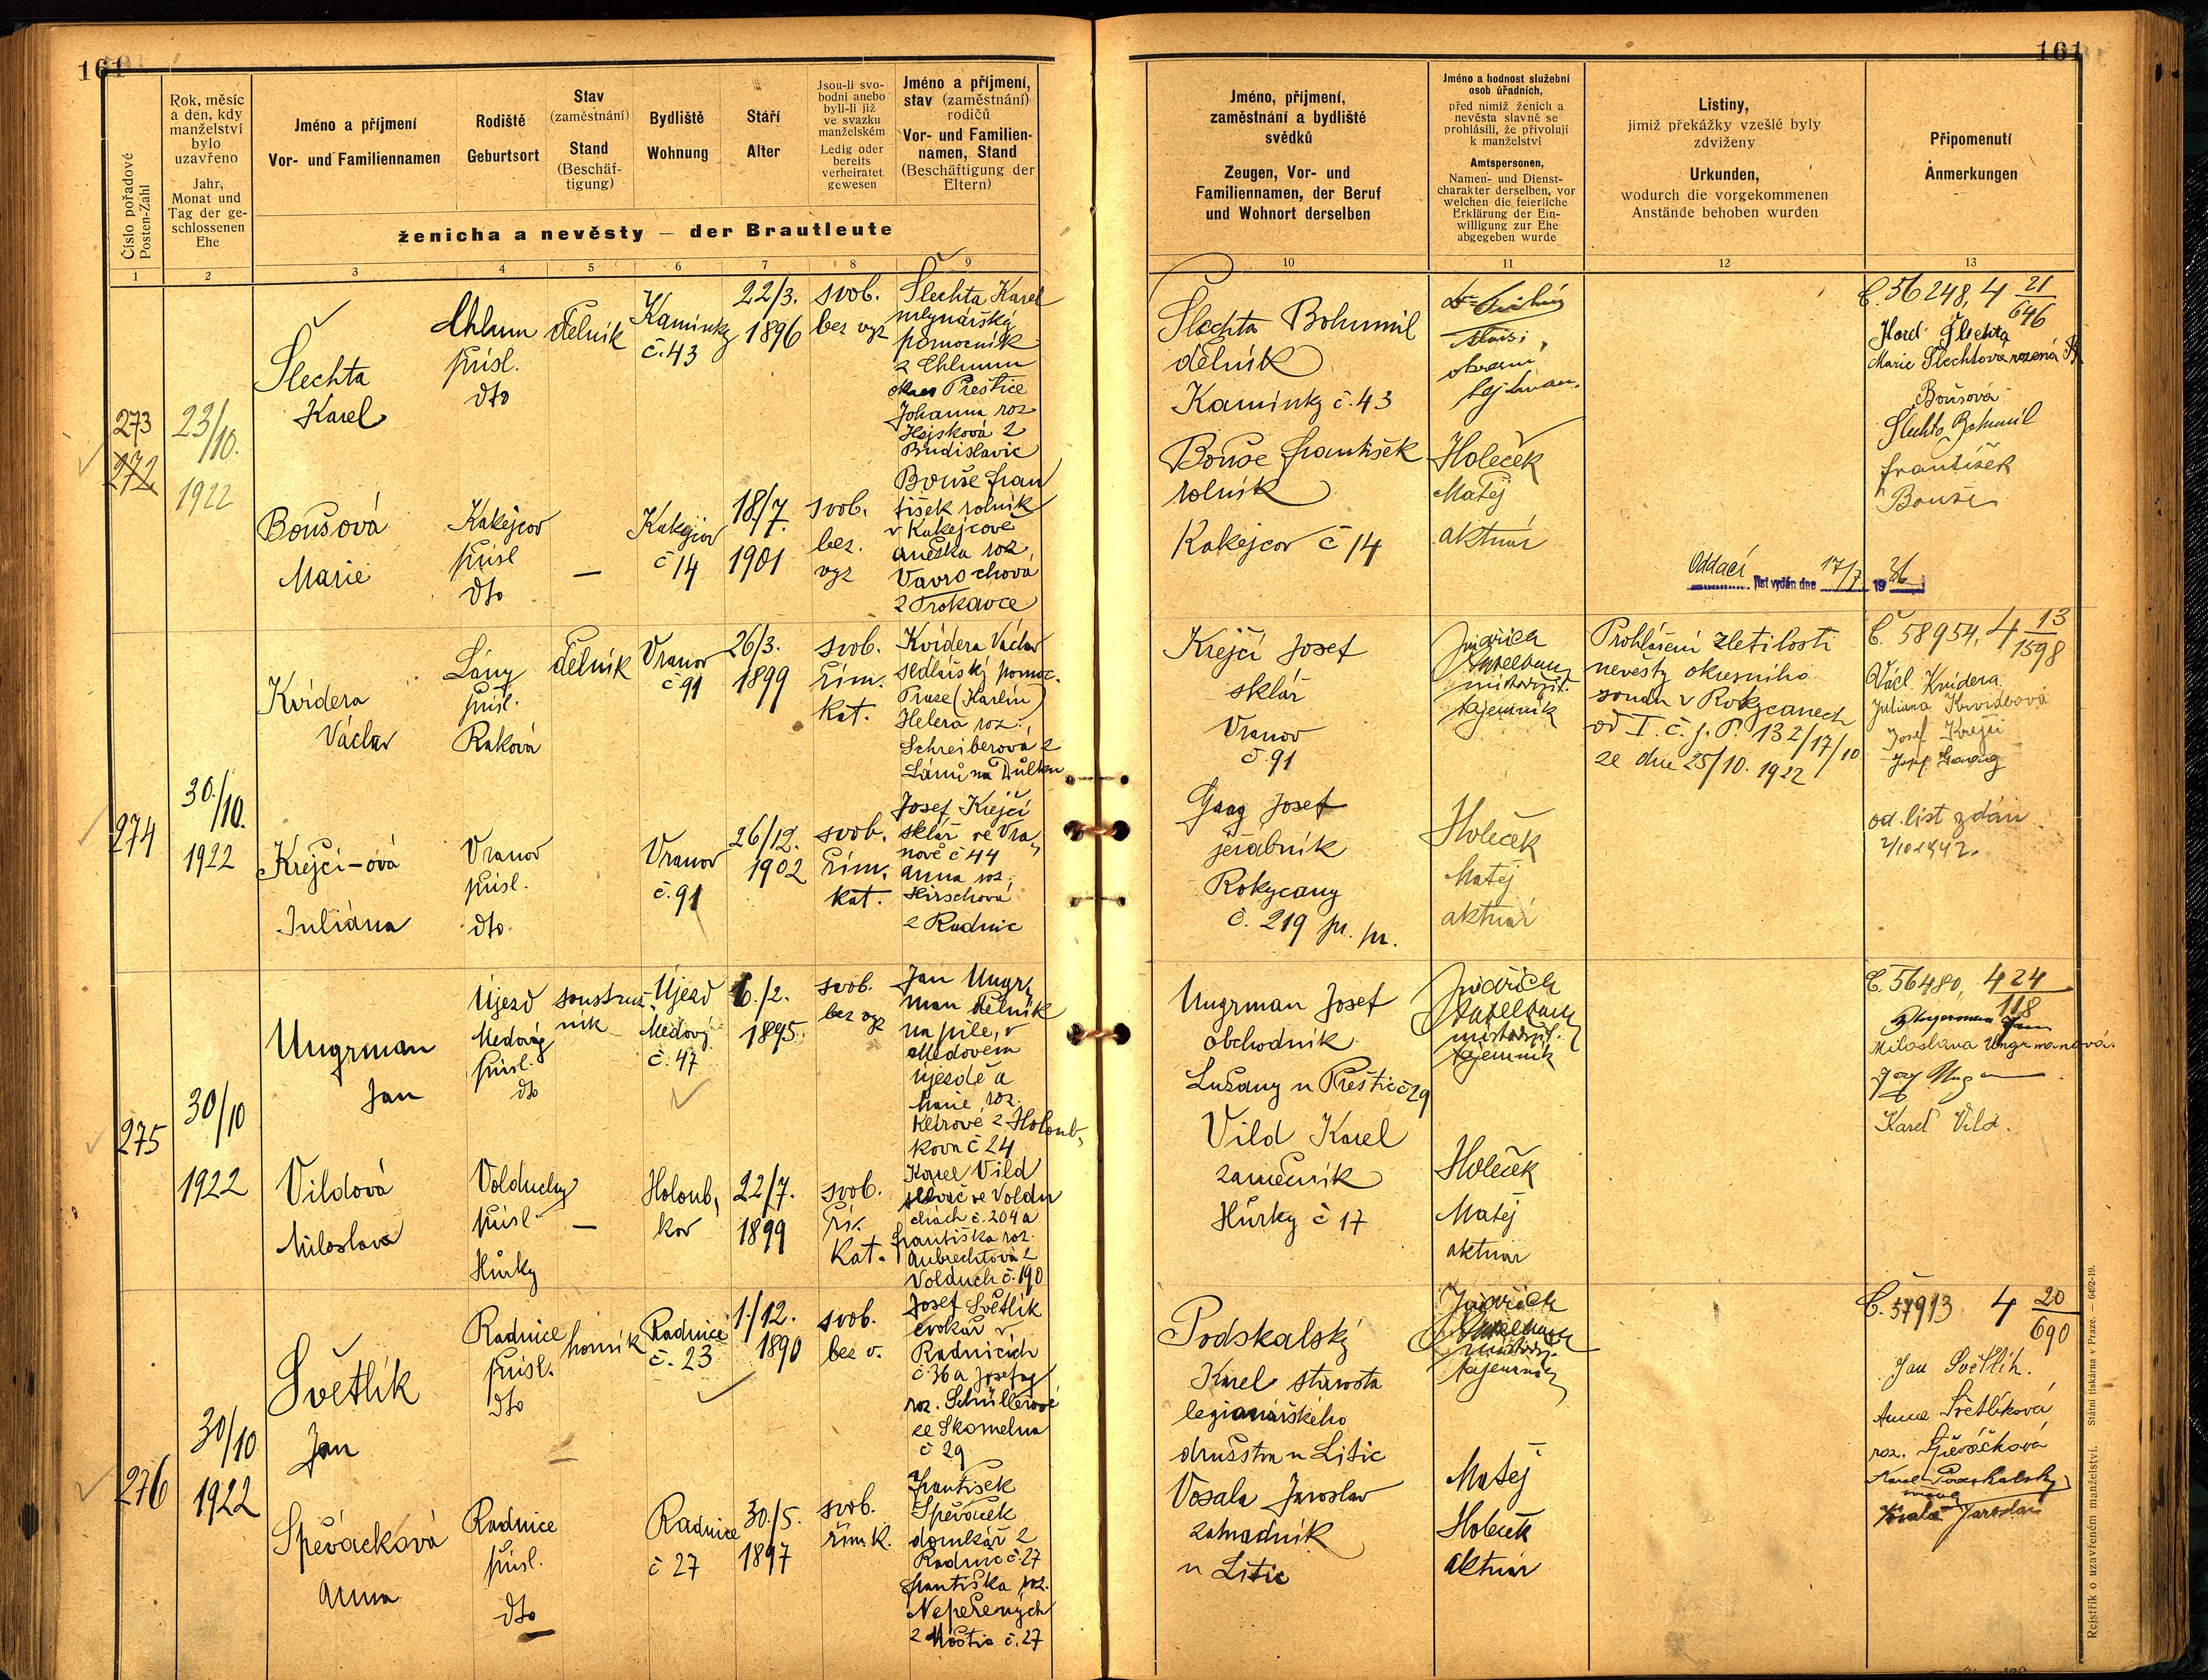 161
161
Číslo pořadové
Posten-Zahl
Rok, měsíc
a den, kdy
manželství
bylo
uzavřeno
Jahr,
Monat und
Tag der ge-
schlossenen
Ehe
Jméno a příjmení
Vor- und Familiennamen
Rodiště
Geburtsort
Stav
(zaměstnání)
Stand
(Beschäf-
tigung)
Bydliště
Wohnung
Stáří
Alter
Jsou-li svo-
bodni anebo
byli-li již
ve svazku
manželském
Ledig oder
bereits
verheiratet
gewesen
Jméno a příjmení,
stav (zaměstnání)
rodičů
Vor- und Familien-
namen, Stand
(Beschäftigung der
Eltern)
ženicha a nevěsty — der Brautleute
1 2 3 4 5 6 7 8 9
Jméno, příjmení,
zaměstnání a bydliště
svědků
Zeugen, Vor- und
Familiennamen, der Beruf
und Wohnort derselben
Jméno a hodnost služební
osob úřadních,
před nimiž ženich a
nevěsta slavně se
prohlásili, že přivolují
k manželství
Amtspersonen,
Namen- und Dienst-
charakter derselben, vor
welchen die feierliche
Erklärung der Ein-
willigung zur Ehe
abgegeben wurde
Listiny,
jimiž překážky vzešlé byly
zdviženy
Urkunden,
wodurch die vorgekommenen
Anstände behoben wurden
Připomenutí
Anmerkungen
10 11 12 13
273
272
23/10.
1922
Šlechta
Karel
Chlum
přísl.
dto
dělník
Kamínky
č. 43
22/3.
1896
svob.
bez vyz
Šlechta Karel
mlynářský
pomocník
z Chlumu
okres Přeštice
Johanna roz
Hajsková z
Budislavic
Boušová
Marie
Kakejcov
přísl
dto
—
Kakejcov
č 14
18/7.
1901
svob.
bez.
vyz
Bouše Fran
tišek rolník
v Kakejcově
Anežka roz.
Vavrochová
z Trokavce
Šlechta Bohumil
dělník
Kamínky č. 43
Bouše František
rolník
Kakejcov č 14
okresní
hejtman.
Holeček
Matěj
aktuár
Oddací list vydán dne 17/7 1936
Č. 56248, 4 21/646
Karel Šlechta
Marie Šlechtová rozená
Boušová
Šlechta Bohumil
František
Bouše
274
30./10.
1922
Kvidera
Václav
Lány
přísl.
Raková
dělník
Vranov
č 91
26/3.
1899
svob.
řím.
kat.
Kvidera Václav
sedlářský pomoc.
Praze (Karlín)
Helena roz.
Schreiberová z
Lánů na Důlku
Krejčí-ová
Juliána
Vranov
přísl.
dto.
Vranov
č. 91
26/12.
1902
svob.
řím.
kat.
Josef Krejčí
sklář ve Vra-
nově č 44
Anna roz.
Hirschová
z Radnic
Krejčí Josef
sklář
Vranov
č. 91
Gaag Josef
jeřábník
Rokycany
č. 219 pr. pr.
Jindřich
místodrž.
tajemník
Holeček
Matěj
aktuár
Prohlášení zletilosti
nevěsty okresního
soudu v Rokycanech
od I. č. j. P. 132/17/10
ze dne 25/10. 1922
Č. 58954, 4 13/1598
Václ. Kvidera
Juliana Kvideová
Josef Krejčí
Josef Gaag
od. list vydán
2/10 1942.
275
30/10
1922
Ungrman
Jan
Újezd
Medový
přísl.
dto
soustruž-
ník
Újezd
Medový
č. 47
6./2.
1895
svob.
bez vyz
Jan Ungr-
man dělník
na pile, v
Medovém
újezdě a
Marie roz.
Keírové z Holoub-
kova č 24
Vildová
Miloslava
Volduchy
přísl
Hůrky
—
Holoub-
kov
22/7.
1899
svob.
ří.
kat.
Karel Vild
slévač ve Voldu
chách č. 204 a
Františka roz.
Aubrechtová z
Volduch č. 190
Ungrman Josef
obchodník
Lužany u Přeštic č 29
Vild Karel
zámečník
Hůrky č 17
Jindřich
místodrž.
tajemník
Holeček
Matěj
aktuár
Č. 56480, 4 24/118
Ungerman Jan
Miloslava Ungrmanová
Karel Vild.
276
30/10
1922
Světlík
Jan
Radnice
přísl.
dto
horník
Radnice
č. 23
1./12.
1890
svob.
bez v.
Josef Světlík
cvokař v
Radnicích
č. 36 a Josefa
roz. Schüllerové
ze Skomelna
č 29
Speváčková
Anna
Radnice
přísl.
dto
Radnice
č 27
30./5.
1897
svob.
řím. k.
František
Speváček
domkář z
Radnic č. 27
Františka roz.
Nepřených
z Moštic č. 27
Podskalský
Karel starosta
legionářského
družstva u Litic
Vosala Jaroslav
zahradník
u Litic
Jindřich
místodrž.
tajemník
Matěj
Holeček
aktuár
Č. 57913 4 20/690
Jan Světlík.
Anna Světlíková
roz. Speváčková
Karel Podskalský
Vosala Jaroslav
Rejstřík o uzavřeném manželství. Státní tiskárna v Praze. — 6492-19.